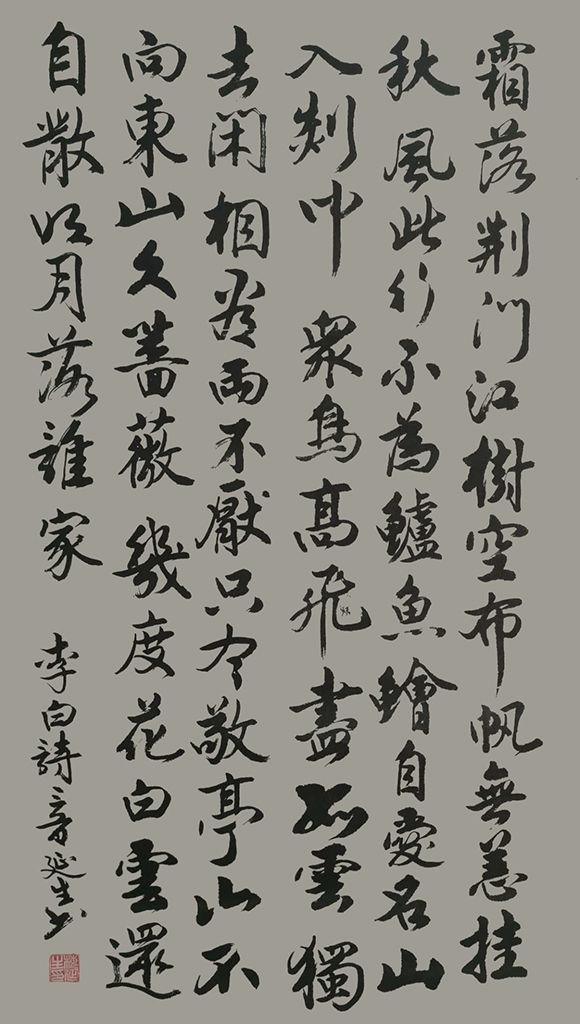 霜落荆门江樹空布帆無恙挂
秋風此行不為鱸魚鱠自愛名山
入剡中 衆鳥高飛盡孤雲獨
去閑相看兩不厭只有敬亭山不
向東山久薔薇幾度花白雲還
自散明月落誰家
李白詩 延生书